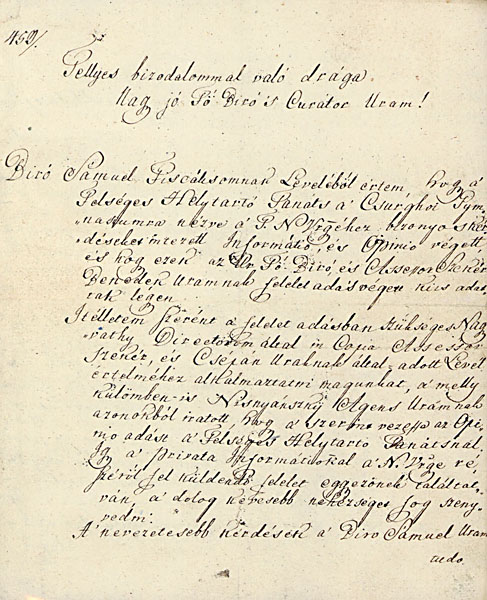 452/.
Tellyes bizodalommal való drága
Nag jó Fő Biró is Curátor Uram!
Biró Sámuel Fiscálisomnak Leveléből értem, hogy a
Felséges Helytartó Tanáts a Csurgói Gym,
nasiumra nézve a T. N. Vgyéhez bizonyos kér
déseket intézett Informátió és Opinio végett,
és hogy ezek az Ur Fő Biró, és Assessor
Uramnak felelet adás végett kiis adat,
tak légen.
Itélletem szerént a felelet adásban szükséges Nagy
váthy Directorom által in Copia Assessor
és Csépán Uraknak által adott Levél
értelméhez alkalmaztatni magunkat, a melly
külömben is Nisnyánszky Agens Uramnak
azonokból iratott, hogy a szerént vezesse az Opi,
nio adást a Felséges Helytartó Tanátsnál,
a privata Informátiokal a N. Vgye ré,
széről fel küldendő felelet eggyezőnek találtat,
ván, a dolog kevesebb nehézséget fog szeny,
vedni.
A' nevezetesebb kérdések a Biró Sámuel Uram